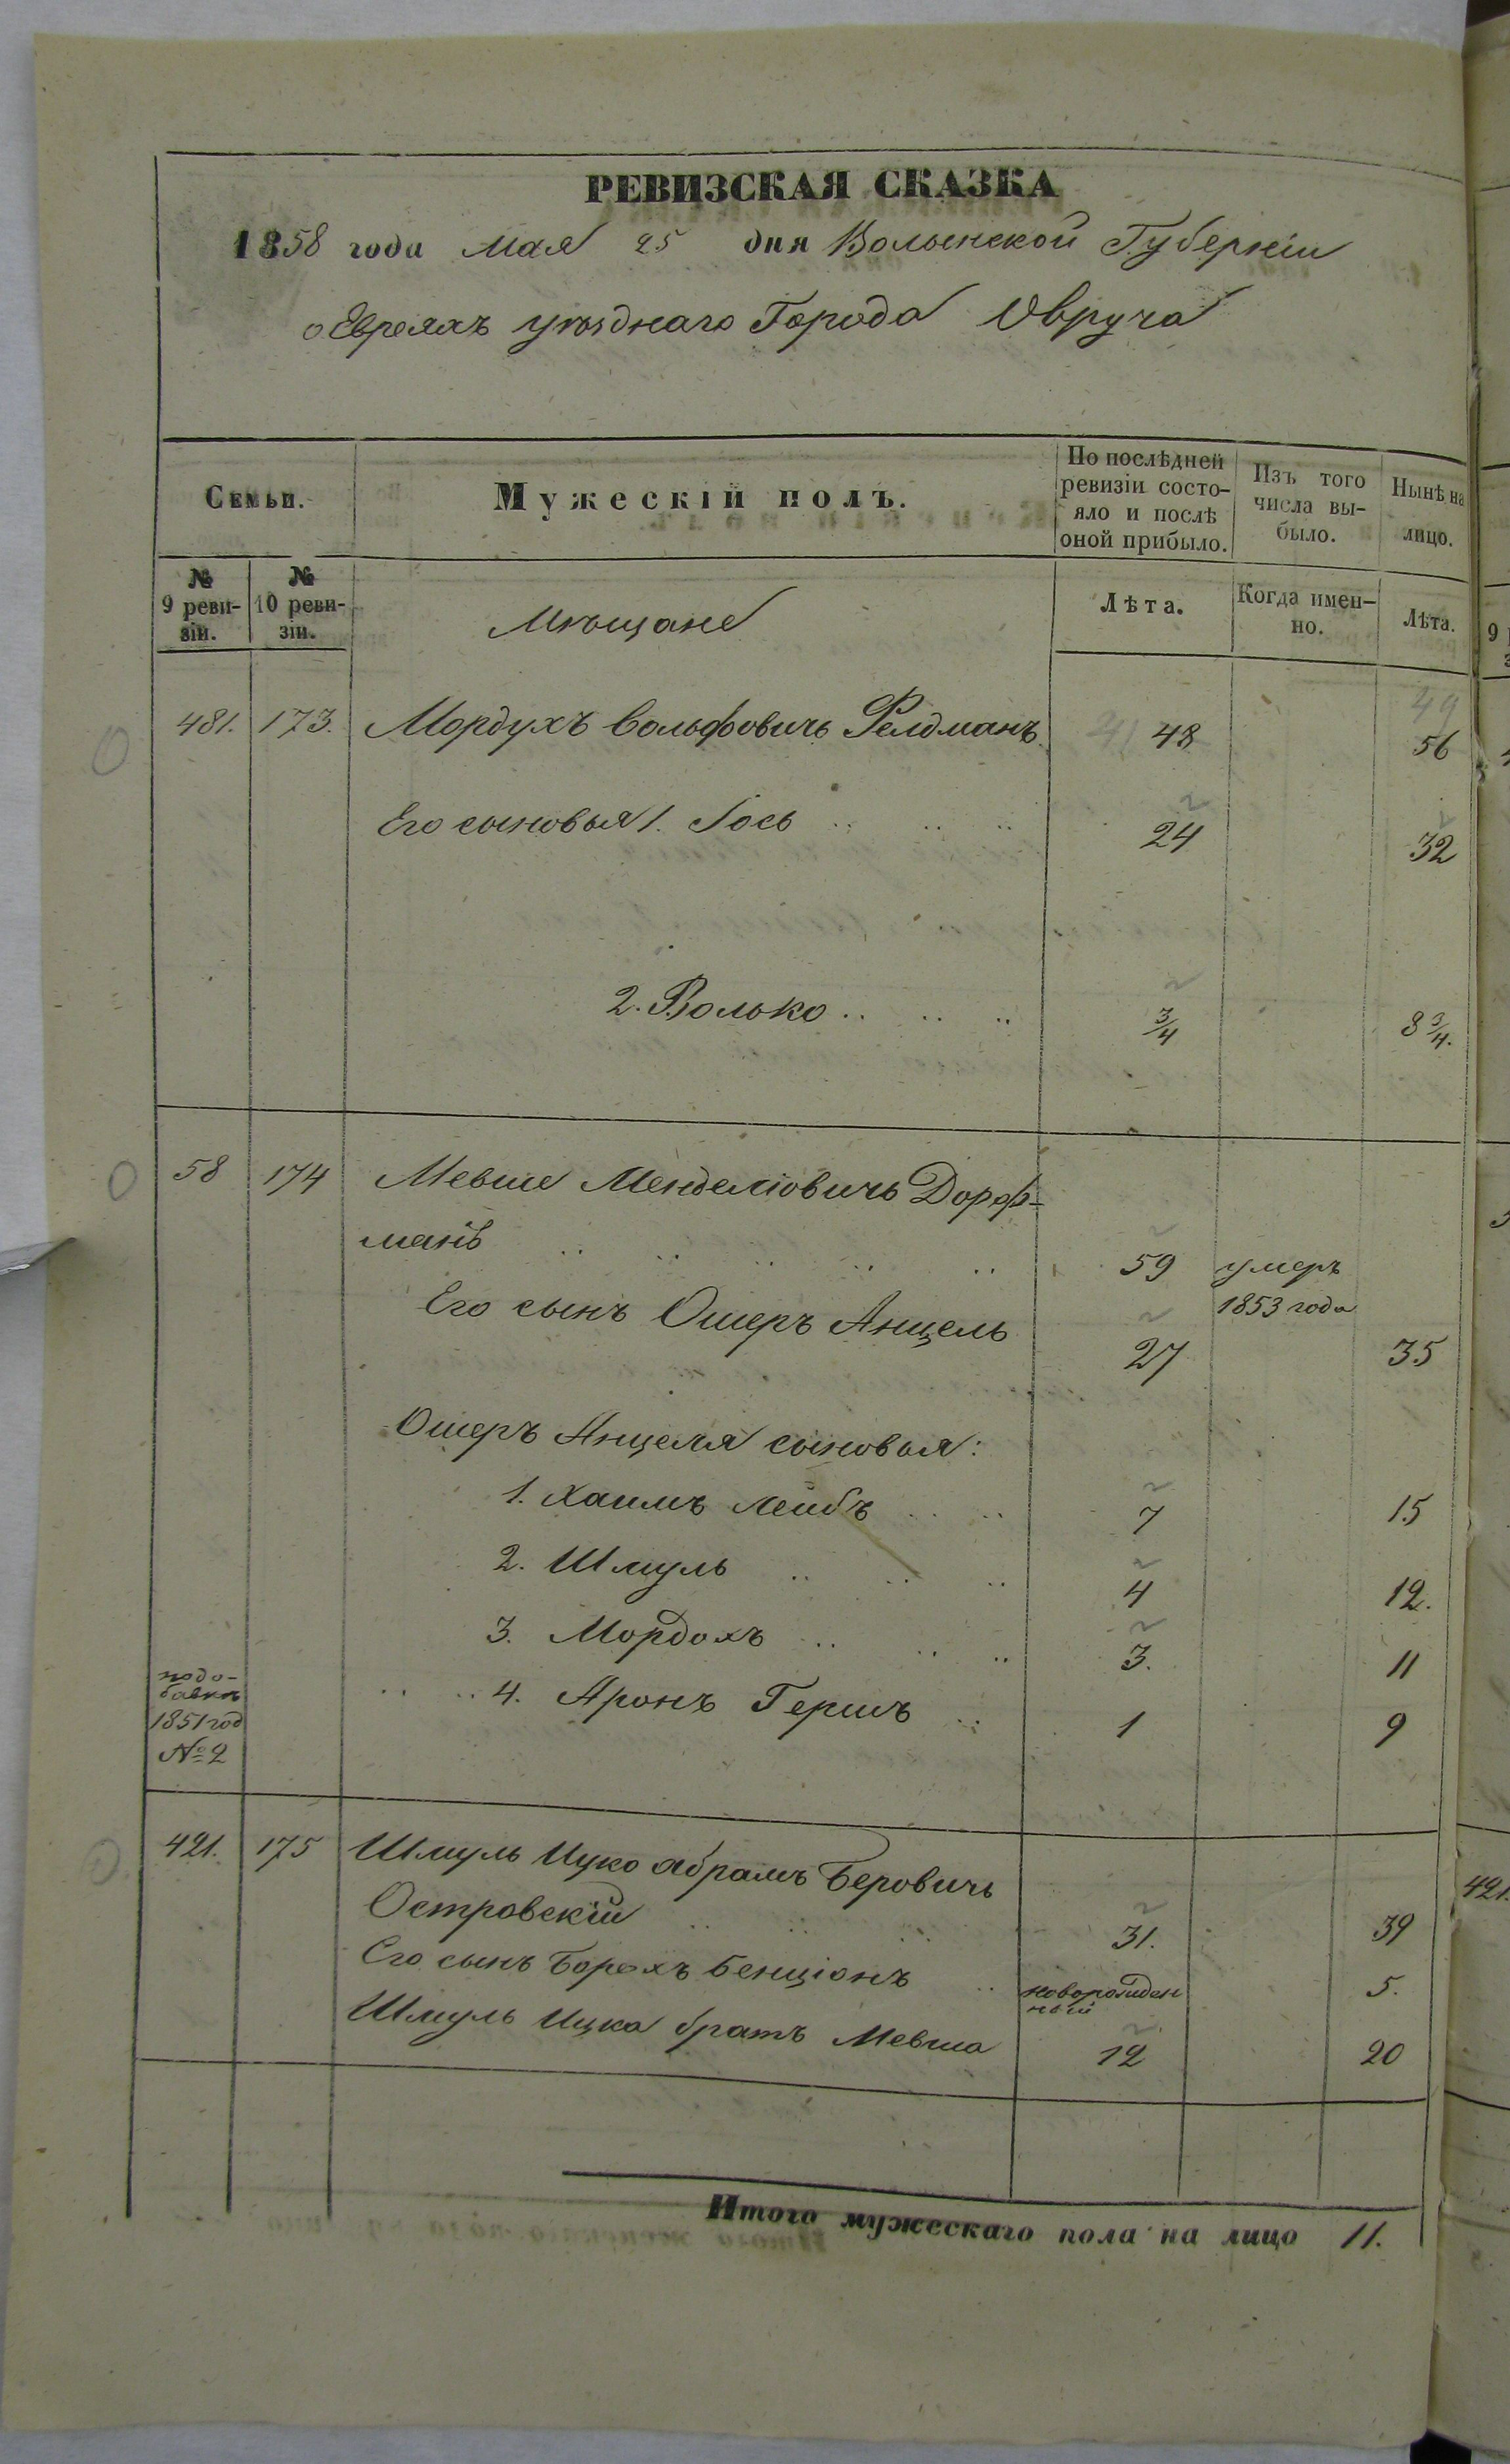 РЕВИЗСКАЯ СКАЗКА
1858 года Мая 25 дня Волынской Губерніи
о Евреяхъ уѣзднаго Города Овруча
Семьи.
Мужескій полъ.
По послѣдней ревизіи состо-
яло и послѣ
оной прибыло.
Изъ того
числа вы-
было.
Нынѣ на
лицо.
№
9 реви-
зіи.
№
10 реви-
зіи.
Мѣщане
Лѣта.
Когда имен-
но.
Лѣта.
49
481. 173. Мордухъ Вольфовичь Фелдманъ 41 48 56
Его сыновья 1. Іось .. .. .. 24 32
2. Волько .. .. .. 3/4 8 3/4.
58 174 Мевше Менделіовичь Дорф-
манъ .. .. .. .. .. 59 умеръ
1853 года
Его сынъ Ошеръ Анцель 27 35
Ошеръ Анцеля сыновья:
1. Хаимъ Лейбъ .. .. 7 15
2. Шмуль .. .. .. 4 12.
3. Мордохъ .. .. .. 3. 11
1851 год
№ 2
.. .. 4. Аронъ Гершъ .. 1 9
421. 175 Шмуль Ицко Абрамъ Беровичь
Островскій .. .. .. 31. 39
Его сынъ Борохъ Бенціонъ .. новорожден
ный 5.
Шмуль Ицка братъ Мевша 12 20
Итого мужескаго пола на лицо 11.
421.